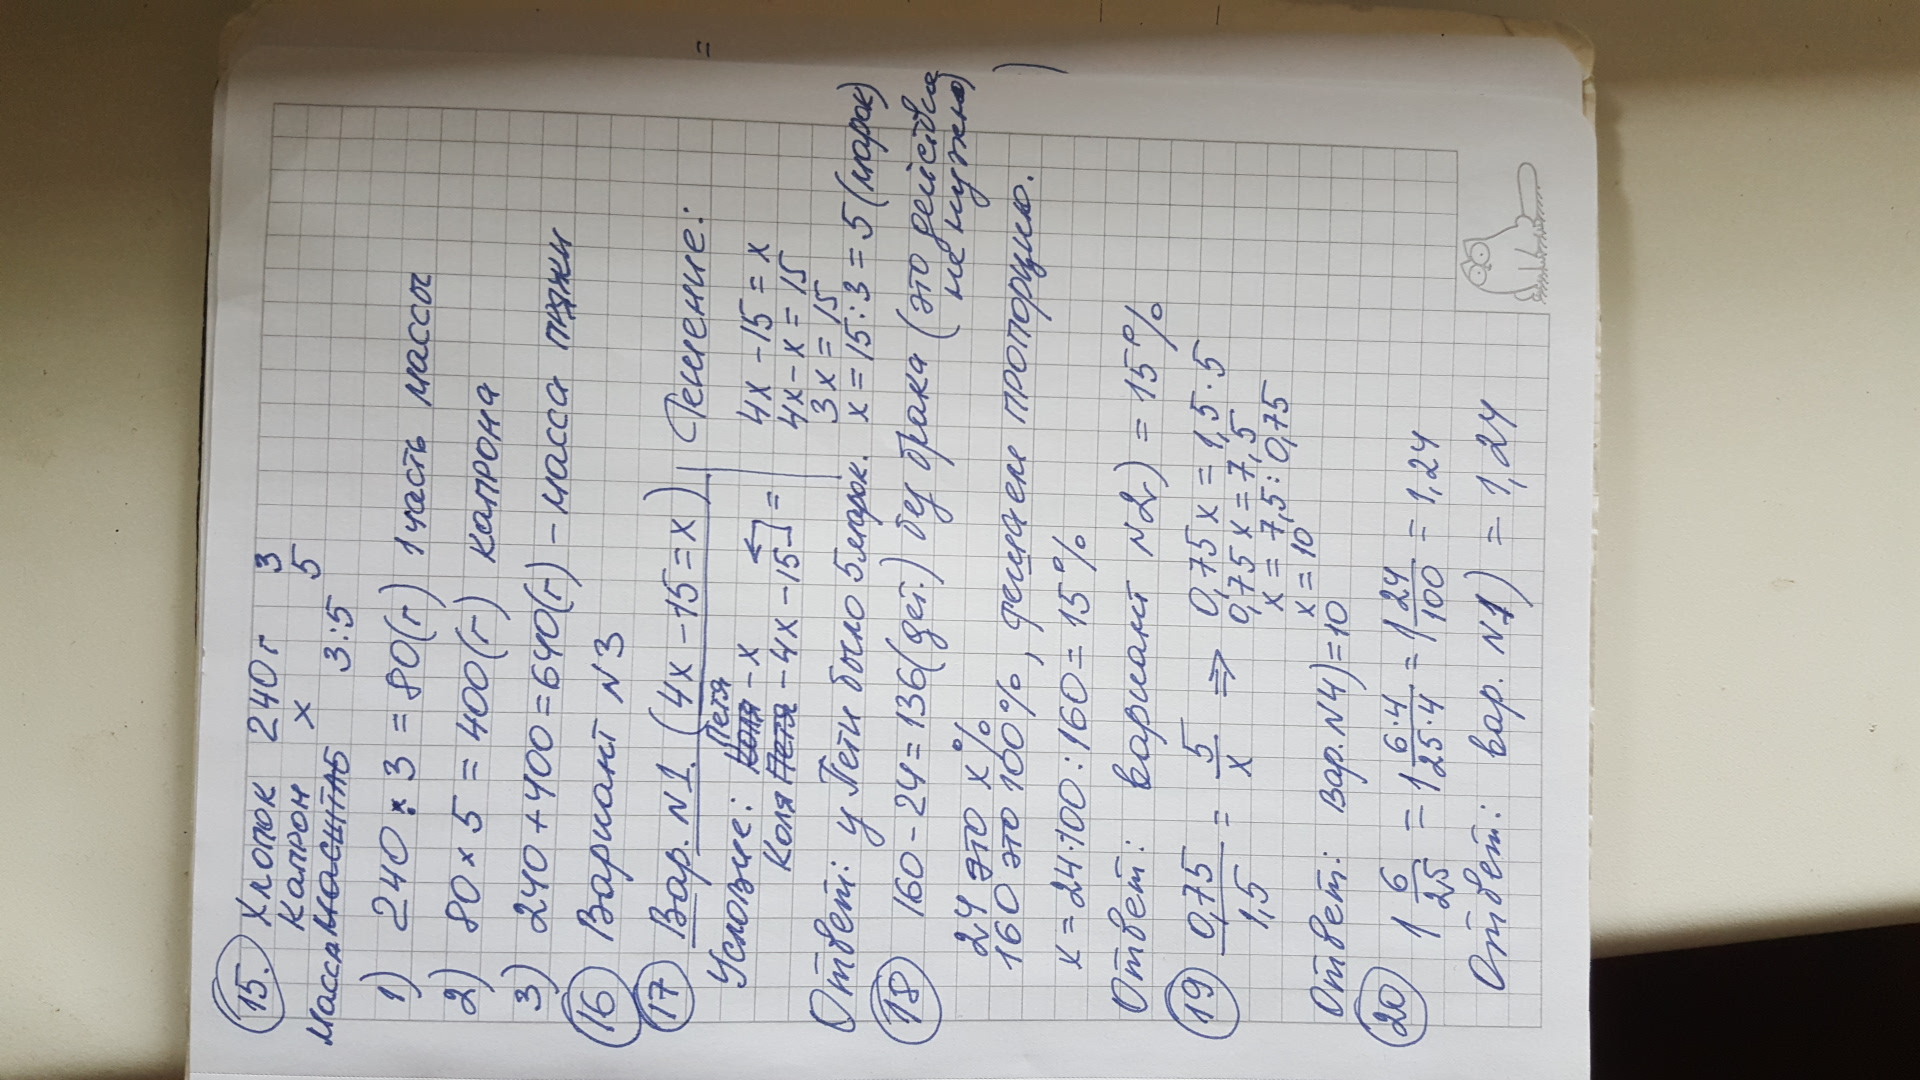 15. Хлопок 240 г 3
Капрон х 5
Масса 3:5
1) 240 : 3 = 80 (г) 1 часть массы
2) 80 × 5 = 400 (г) капрона
3) 240 + 400 = 640 (г) - масса пряжи
16 Вариант N 3
17 Вар. N1. (4х - 15 = х) Решение:
Условие: Петя - х
Коля - 4х - 15 =
4х - 15 = х
4х - х = 15
3х = 15
х = 15 : 3 = 5 (марок)
Ответ: у Пети было 5 марок.
18 160 - 24 = 136 (дет.) без брака (это действие
не нужно)
24 это х %
160 это 100 %, решаем пропорцию.
х = 24·100 : 160 = 15 %
Ответ: вариант N2) = 15 %
19 0,75/1,5 = 5/х ⇒ 0,75 х = 1,5 · 5
0,75 х = 7,5
х = 7,5 : 0,75
х = 10
Ответ: Вар. N4) = 10
20 1 6/25 = 1 6·4/25·4 = 1 24/100 = 1,24
Ответ: Вар. N1) = 1,24